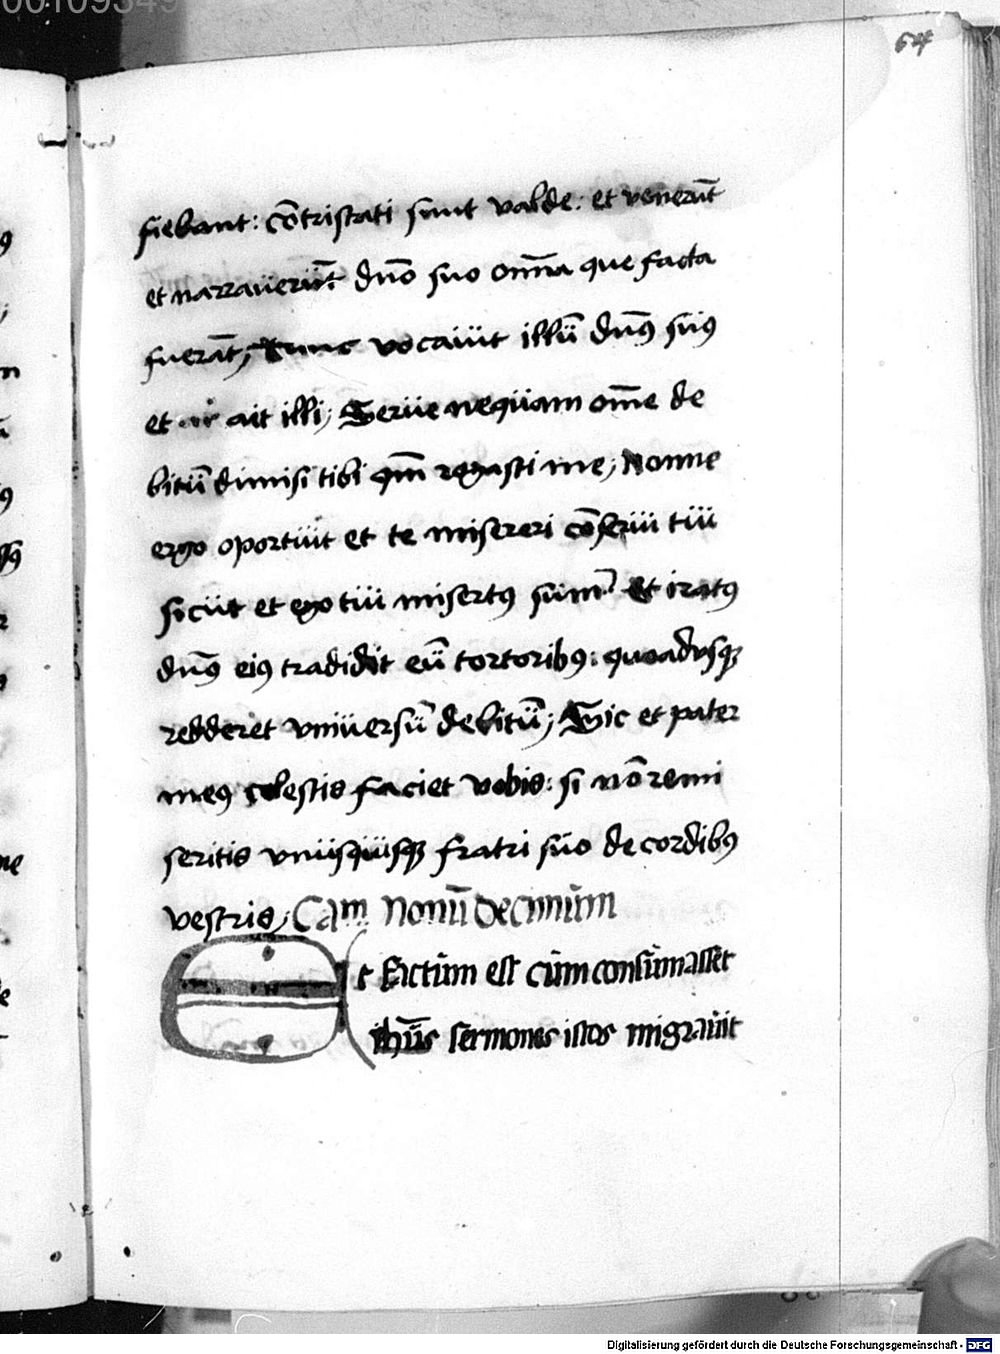 64
fiebant: cōtristati sunt valde: et venerūt
et narraverūt dn̄o suo om̄a que facta
fuerāt; tunc vocavit illū dn̄s suus
et ait illi; Serve nequam om̄e de
bitū dimisi tibi qm̄ rogasti me; Nonne
ergo oportuit et te misereri cōservi tui
sicut et ego tui misertꝰ sum? Et iratꝰ
dn̄s eiꝰ tradidit eū tortoribꝰ: quoadusqꝫ
redderet vniversū debitū; Sic et pater
meꝰ celestis faciet vobis: si nō remi
seritis vnusquisqꝫ fratri suo de cordibꝰ
vestris; Cam nonū decimum
Et factum est cum consummasset
ihūs sermones istos migravit
Digitalisierung gefördert durch die Deutsche Forschungsgemeinschaft - DFG